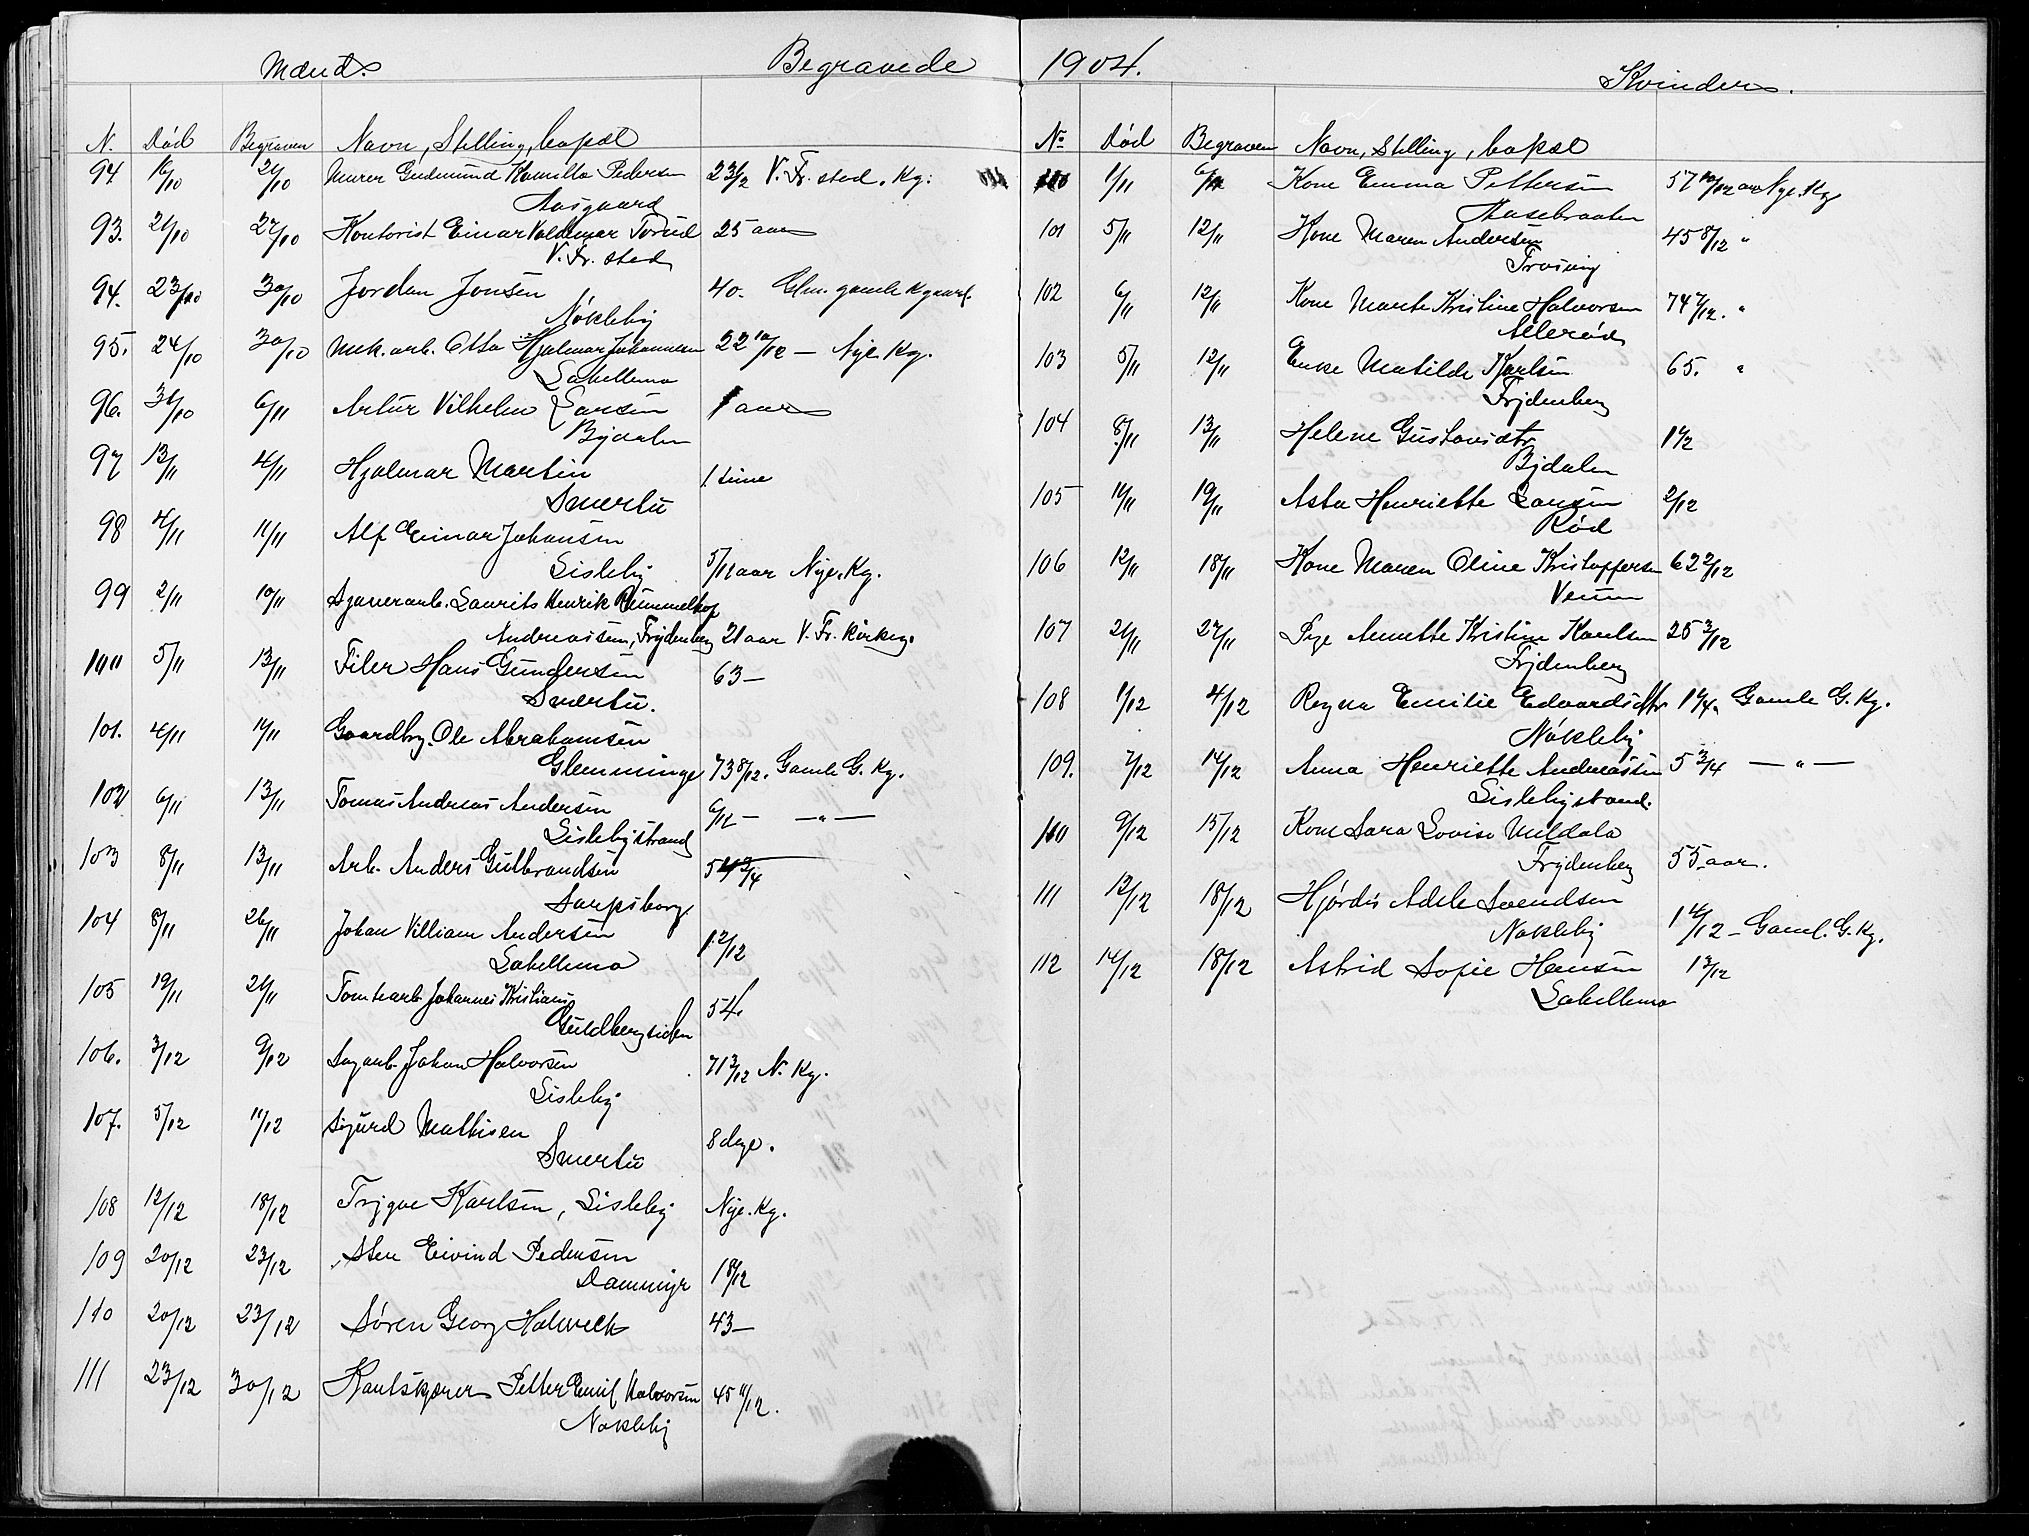 Mænd. Begravede
N. Død Begraven Navn, Stilling, bopæl
94 16/10 21/10 Murer Gudmund Kamillo Pedersen 23 1/2 V. Fr. sted. Kg.
Aasgaard
93. 21/10 27/10 Kontorist Einar Valdemar Torud 25 aar
V. Fr. sted
94. 23/10 30/10 Jordan Jonsen 40. Glm. gamle Kgaard.
Nøkleby
95. 24/10 30/10 Mek. arb. Otto Hjalmar Johannesen 22 10/12 — Nye. Kg.
Labellema
96. 31/10 6/11 Artur Vilhelm Larsen 1 aar
Bydalen
97 13/11 4/11 Hjalmar Martin 1 time
Smertu
98 4/11 11/11 Alf Einar Johansen
Lisleby 5/11 aar Nye. Kg.
99 2/11 10/11 Sjauerarb. Laurits Henrik Rummelhof
Andreassen, Frydenberg 21 aar V. Fr. Kirkeg.
100 5/11 13/11 Filer Hans Gundersen 63 —
Smertu.
101. 4/11 11/11 Gaardbr. Ole Abrahamsen
Glemminge 73 8/12. Gamle G. Kg.
102 6/11 13/11 Tomas Andreas Andersen 6/12 — — " —
Lislebystrand
103 8/11 13/11 Arb. Anders Gulbrandsen 54 3/4
Sarpsborg
104 8/11 26/11 Johan Villiam Andersen 1 2/12
Labellema
105 19/11 21/11 Tomtearb. Johannes Kristians 54.
Guldbergsiden
106. 3/12 9/12 Sagarb. Johan Halvorsen 71 3/12 N. Kg.
Lisleby
107. 5/12 11/12 Sigurd Mathisen 8 dage.
Smertu
108 12/12 18/12 Trygve Karlsen, Lisleby Nye. Kg.
109 20/12 23/12 Sten Eivind Pedersen
Dammyr 1 8/12
110 20/12 23/12 Søren Georg Holweck 43 —
111 23/12 30/12 Kantskjærer Petter Emil Halvorsen 45 11/12.
Nøkleby
1904. Kvinder.
No Død Begraven Navn, Stilling, bopæl
100 1/11 6/11 Kone Emma Pettersen 57 10/12 aar Nye. Kg
Aasebraaten
101 5/11 12/11 Kone Maren Andersen 45 8/12 "
Trosvig
102 6/11 12/11 Kone Marte Kristine Halvorsen 74 7/12. "
Allerød
103 5/11 12/11 Enke Matilde Karlsen 65. "
Frydenberg
104 8/11 13/11 Helene Gustavsdtr 1 1/2
Bydalen
105 11/11 19/11 Asta Henriette Larsen 2/12
Rød
106 12/11 18/11 Kone Maren Oline Kristoffersen 62 2/12
Veum
107 21/11 27/11 Pige Annette Kristine Karlsen 25 3/12
Frydenberg
108 1/12 4/12 Ragna Emilie Edvardsdtr 1 1/4. Gamle G. Kg.
Nøkleby
109. 7/12 14/12 Anna Henriette Andreassen 5 3/4 — " —
Lislebystrand.
110 9/12 15/12 Kone Sara Lovise Meldala
Frydenberg 55 aar.
111 12/12 18/12 Hjørdis Adele Svendsen
Nøkleby 1 4/12 — Gaml. G. Kg.
112 14/12 18/12 Astrid Sofie Hansen 1 3/12
Labellema